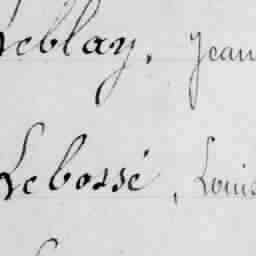 Leblay, Jean
Lebossé, Louis